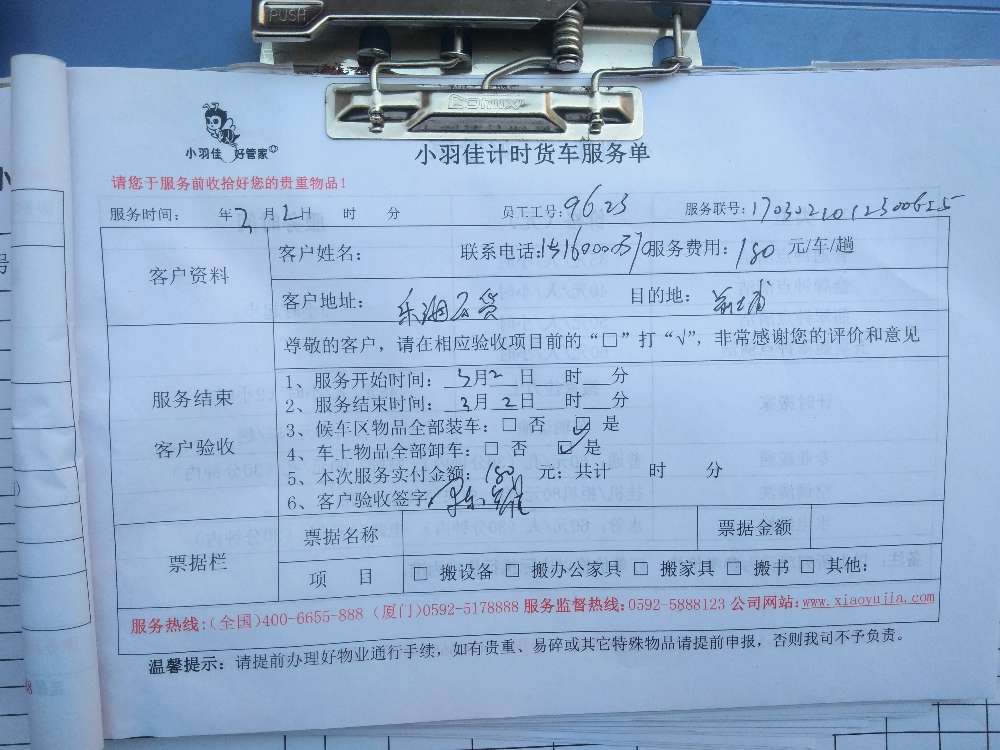 PUSH
小羽佳 好管家
小羽佳计时货车服务单
请您于服务前收拾好您的贵重物品!
服务时间: 年 3 月 2 日 时 分 员工工号: 9623 服务联号:
客户资料
客户姓名: 联系电话: 服务费用: 180 元/车/趟
客户地址: 目的地:
服务结束
客户验收
尊敬的客户,请在相应验收项目前的“□”打“√”,非常感谢您的评价和意见
1、服务开始时间: 3月2日 时 分
2、服务结束时间: 3月2日 时 分
3、候车区物品全部装车: □ 否 ☑ 是
4、车上物品全部卸车: □ 否 ☑ 是
5、本次服务实付金额: 180 元: 共计 时 分
6、客户验收签字:
票据栏
票据名称 票据金额
项 目 □ 搬设备 □ 搬办公家具 □ 搬家具 □ 搬书 □ 其他:
服务热线:(全国)400-6655-888 (厦门)0592-5178888 服务监督热线:0592-5888123 公司网站:www.xiaoyujia.com
温馨提示: 请提前办理好物业通行手续,如有贵重、易碎或其它特殊物品请提前申报,否则我司不予负责。